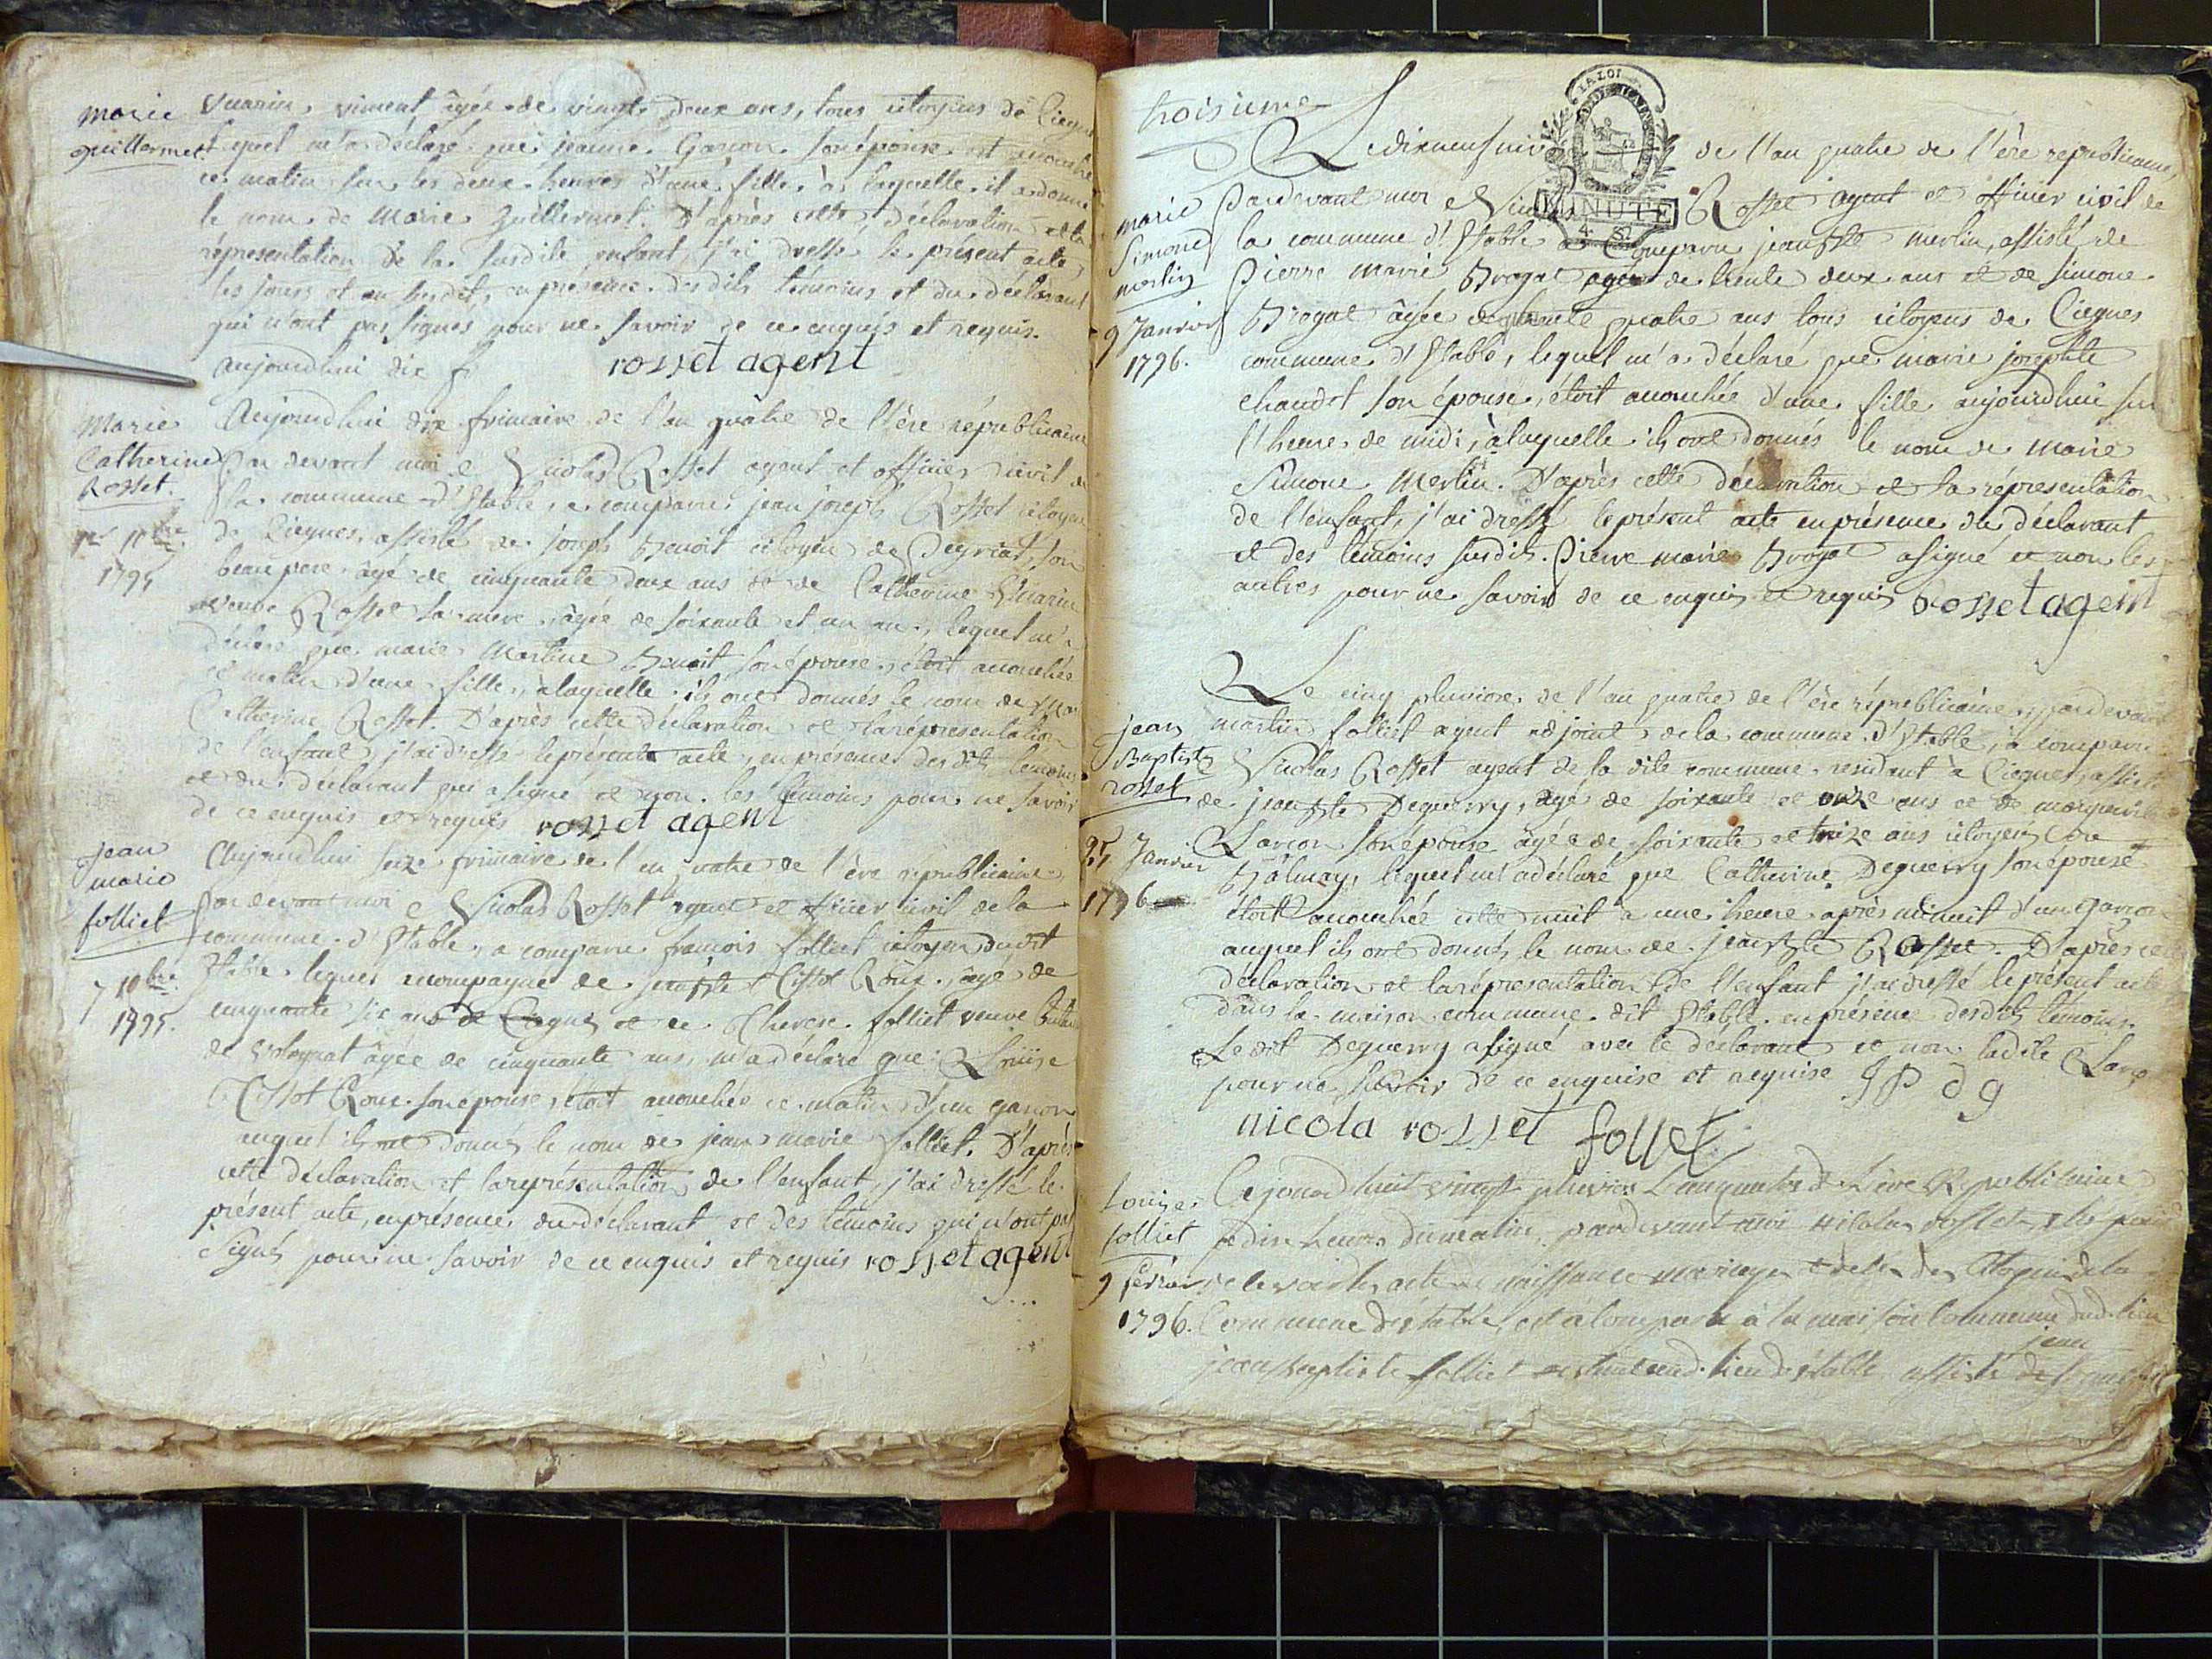 marie
guillermet
Vuarin, viment âgée de vingt deux ans, tous citoyens de Ciegnes
lequel m'a déclaré que jeanne Garcon son épouse est accouchée
ce matin sur les deux heures d'une fille à laquelle il a donné
le nom de Marie Guillermet. D'après cette déclaration et la
répresentation de la susdite enfant, j'ai dressé le présent acte
les jours et an susdits, en présence desdits témoins et du déclarant
qui n'ont pas signés pour ne savoir de ce enquis et requis.
aujourdhui dix f rosset agent
Marie
Catherine
Rosset.
1er Xbre
1795
Aujourdhui dix frimaire de l'an quatre de l'ère républicaine
Par devant moi Nicolas Rosset agent et officier civil de
la commune d'Stable, a comparu jean joseph Rosset citoyen
de Ciegnes, assisté de joseph Benoit citoyen de Peyriat, son
beau pere âgé de cinquante deux ans et de Catherine Vuarin
veuve Rosset sa mere, âgée de soixante et un an, lequel m'a
déclaré que marie Martine Benoit son épouse, étoit accouchée
ce matin d'une fille, à laquelle ils ont donnés le nom de Ma
Catherine Rosset. D'après cette déclaration et la répresentation
de l'enfant, j'ai dressé le présente acte, en présence des dits témoins
et du déclarant qui a signé et non les témoins pour ne savoir
de ce enquis et requis rosset agent
jean
marie
folliet
7 Xbre
1795.
Aujourdhui seize frimaire de l'an quatre de l'ère républicaine
Par devant moi Nicolas Rosset agent et officier civil de la
commune d'Stable, a comparu francois folliet citoyen dudit
Stable lequel accompagné de jean Bte Tissot Roux, âgé de
cinquante six ans de Ciegnes et de Therese folliet veuve
de volognat âgée de cinquante ans, m'a déclaré que Louise
Tissot Roux son épouse, étoit accouchée ce matin d'un garcon
auquel ils ont donnés le nom de jean marie folliet. D'après
cette déclaration et la représentation de l'enfant, j'ai dressé le
présent acte, en présence du déclarant et des témoins qui n'ont pas
signés pour ne savoir de ce enquis et requis rosset agent
troisieme
LA LOI
MINUTE
marie
Simone
merlin
9 Janvier
1796.
Le dixneuf niv de l'an quatre de l'ère republicaine,
Pardevant moi Nicolas Rosset agent et officier civil de
la commune d'Stable a Comparu jean Bte merlin, assisté de
Pierre Marie Brogat agé de trente deux ans et de Simone
Brogat âgée de trente quatre ans tous citoyens de Ciegnes
commune d'Stable, lequel m'a déclaré que marie josephte
chaudet son épouse, étoit accouchée d'une fille aujourdhui sur
l'heure de midi, à laquelle ils ont donnés le nom de marie
Simone Merlin. D'après cette déclaration et la répresentation
de l'enfant, j'ai dressé le présent acte en présence du déclarant
et des témoins susdits. Pierre marie Brogat a signé et non les
autres pour ne savoir de ce enquis et requis rosset agent
jean
Baptiste
rosset
25 Janvier
1796
Le cinq pluviose de l'an quatre de l'ère républicaine, pardevant
martin folliet agent adjoint de la commune d'Stable, a comparu
Nicolas Rosset agent de la dite commune residant à Ciegnes, assisté
de jean Bte Deguerry, âgé de soixante et onze ans et de marguerite
Larcon son épouse âgée de soixante et treize ans citoyens de
Balmay, lequel m'a déclaré que Catherine Deguerry son épouse
étoit accouchée cette nuit à une heure après minuit d'un garcon
auquel ils ont donnés le nom de jean Bte Rosset. D'après cette
déclaration et la répresentation de l'enfant j'ai dressé le présent acte
dans la maison commune dit Stable en présence desdits témoins.
Le dit Deguerry a signé avec le déclarant et non ladite Larcon
pour ne savoir de ce enquise et requise J P d g
nicola rosset follet
Louise
folliet
9 fevrier
1796.
Cejourdhuit vingt pluviose L'anquatre de L'ère Républicaine
a dix heures du matin, pardevant moi nicolas rosset
recevoir les acte de naissance mariage et deces des Citoyens de la
Commune d'éstable, est a Comparu à la maison Commune dud. lieu
jean
jean Baptiste folliet dud. lieu d'éstable assisté de